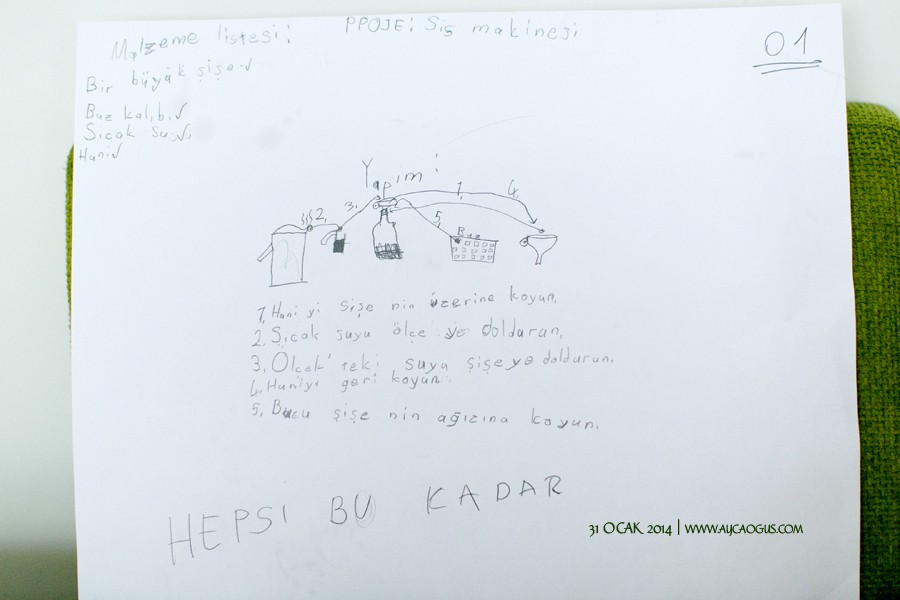 Malzeme listesi:
PPOJE: Sis makinesi
01
Bir büyük şişe √
Buz kalıbı √
Sıcak su √
Huni √
Yapım:
1.
2.
3.
4.
5.
Buz
1. Huni yi şişe nin üzerine koyun.
2. Sıcak suyu ölçe ye doldurun.
3. Ölcek' teki suyu şişeye doldurun.
4. Huniyi geri koyun.
5. Buzu şişe nin ağızına koyun.
HEPSİ BU KADAR
31 OCAK 2014 | WWW.AYCAOGUS.COM